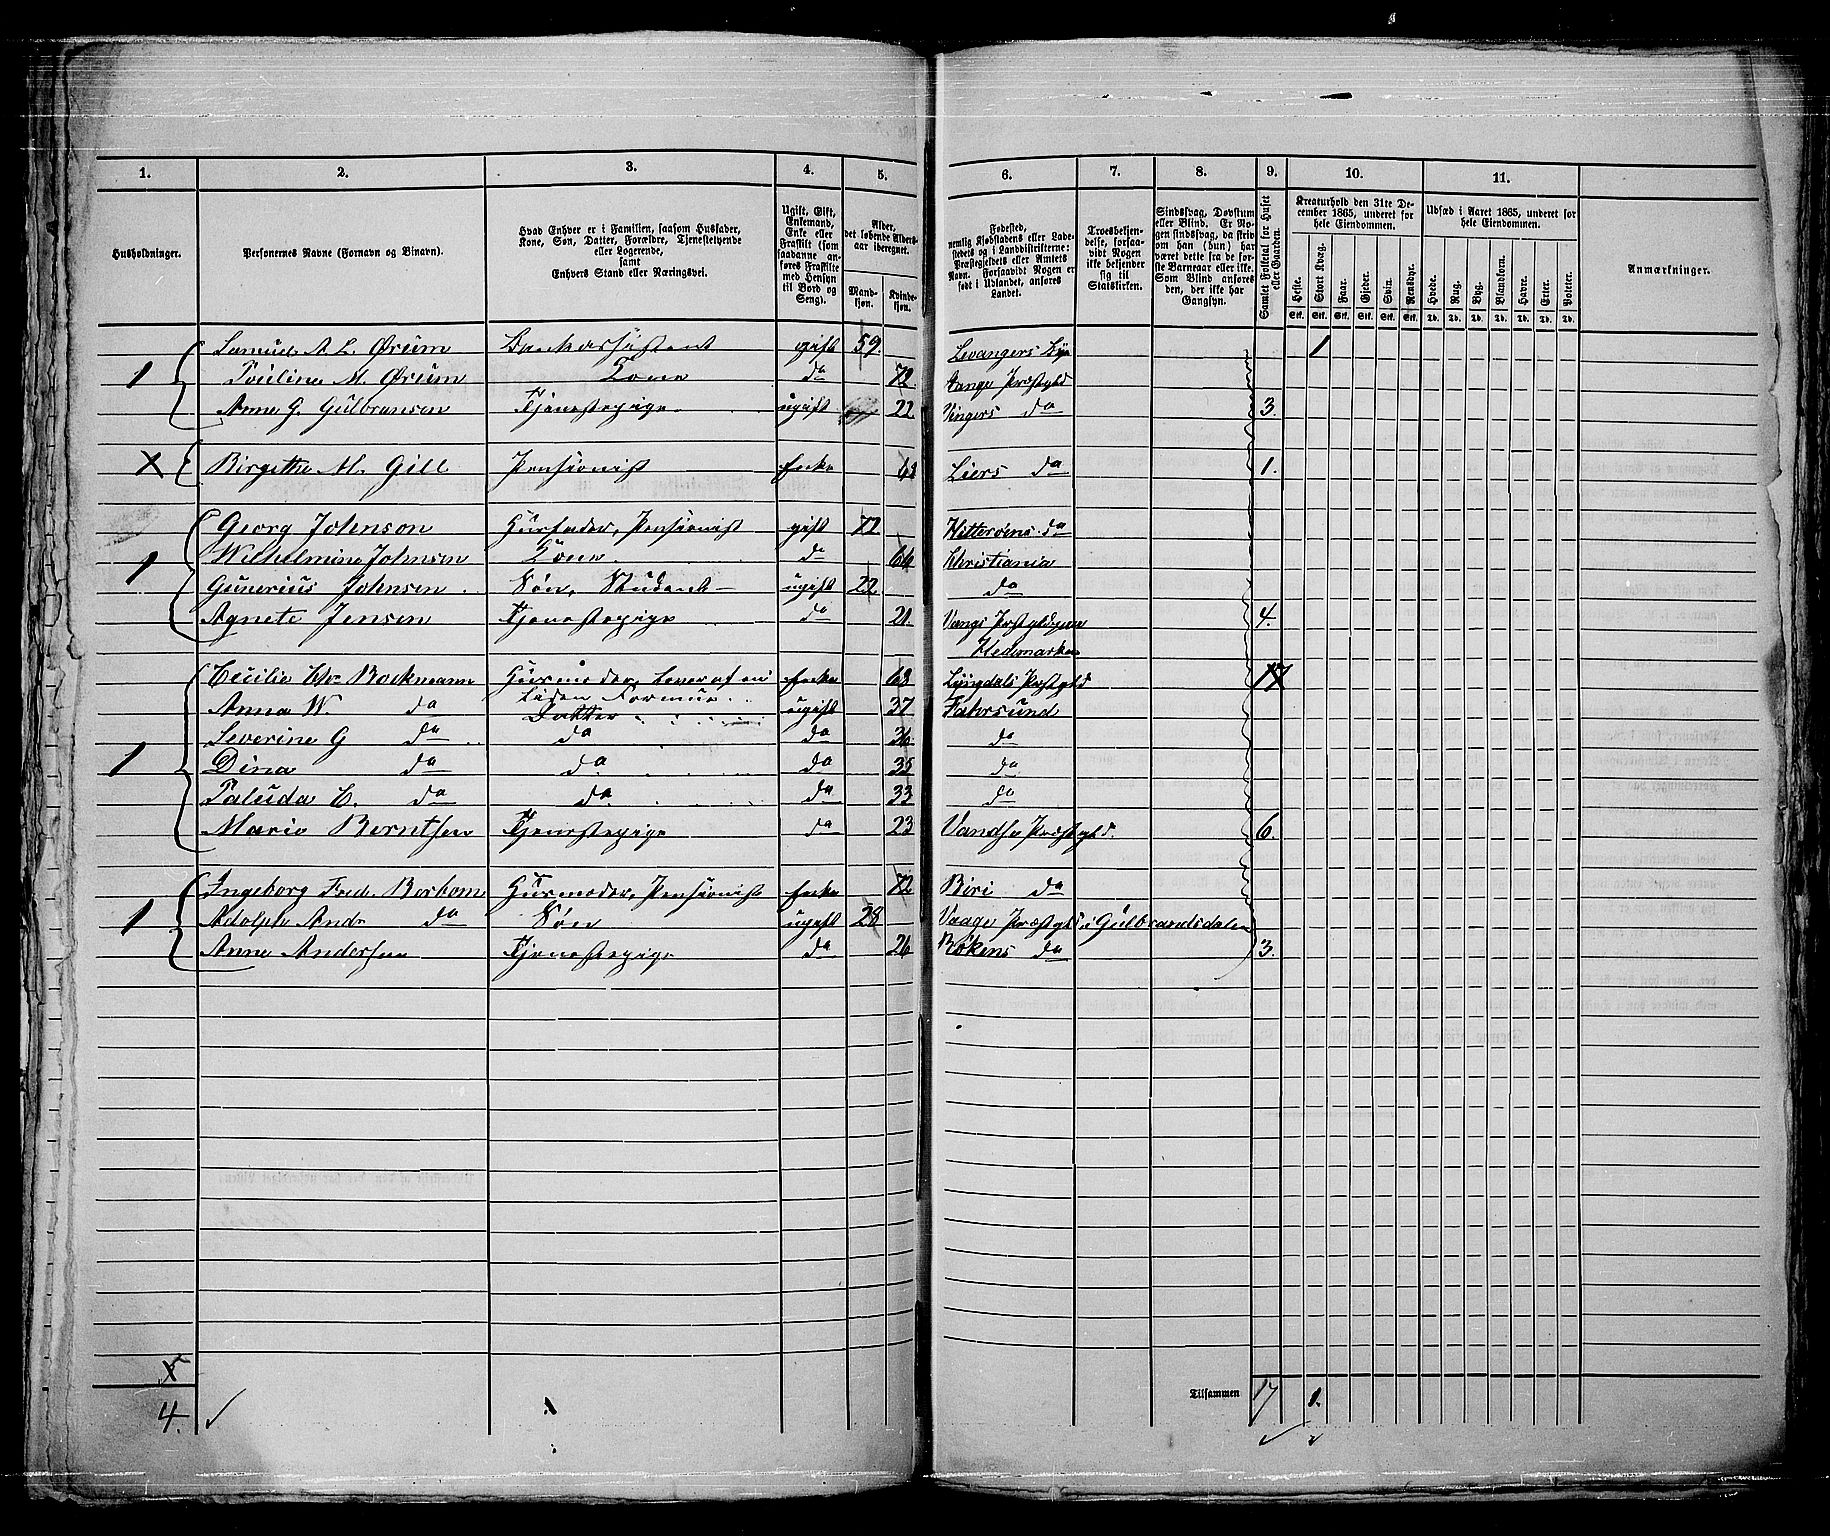 1. 2. 3. 4. 5. 6. 7. 8. 9. 10. 11.
Husholdninger. Personernes Navne (Fornavn og Binavn). Hvad Enhver er i Familien, saasom Husfader, Kone, Søn, Datter, Forældre, Tjenestetyende eller Logerende, samt Enhvers Stand eller Næringsvei. Ugift, Gift, Enkemand, Enke eller Fraskilt (som saadanne anføres Fraskilte med Hensyn til Bord og Seng). Alder, det løbende Alders-aar iberegnet. Mandkjøn. Kvindekjøn. Fødested, nemlig Kjøbstadens eller Ladestedets og i Landdistrikterne: Præstegjeldets eller Amtets Navn. Forsaavidt Nogen er født i Udlandet, anføres Landet. Troesbekjendelse, forsaavidt Nogen ikke bekjender sig til Statskirken. Sindssvag, Døvstum eller Blind. Er Nogen sindssvag, da skrives om han (hun) har været dette fra de første Barneaar eller ikke. Som Blind anføres den, der ikke har Gangsyn. Samlet Folketal for Huset eller Gaarden. Kreaturhold den 31te December 1865, underet for hele Eiendommen. Udsæd i Aaret 1865, underet for hele Eiendommen. Anmærkninger.
Heste. Stort Kvæg. Faar. Gjeder. Svin. Rensdyr. Hvede. Rug. Byg. Blandkorn. Havre. Erter. Poteter.
Stk. Stk. Stk. Stk. Stk. Stk. Td. Td. Td. Td. Td. Td. Td.
Samuel A. L. Ørum Bankassistent gift 59. Levangers By 1
1 Pouline M. Ørum Kone do 72. Stange Præstgld
Anne G. Gulbransen Tjenestepige ugift 22 Vingers do 3.
X Birgithe M. Gill Pensionist Enke 62 Liers do 1.
Georg Johnson Husfader, Pensionist gift 72 Hitterøens do
Wilhelmine Johnsen Kone do 64 Christiania
1 Gunerius Johnsen Søn, Student ugift 22 do
Agnete Jensen Tjenestepige do 21. Vangs Præstgld paa 4.
Hedemarken
Cecilia Bockmann Husmoder, lever af en Enke 68 Lyngdals Præstgld 17
liden Formue
Anna W. do Datter ugift 37 Fahrsund
Severine G do do do 36 do
1 Dina do do do 35 do
Paluda C. do do do 33 do
Marie Berntsen Tjenestepige do 23 Vandsø Præstgld. 6.
Ingeborg Fred. Borkom Husmoder, Pensionist Enke 72 Biri do
1 Adolph Andr do Søn ugift 28 Vaage Præstgld i Gulbrandsdalen
Anne Andersen Tjenestepige do 26 Røkens do 3.
5
Tilsammen 17 1.
4.